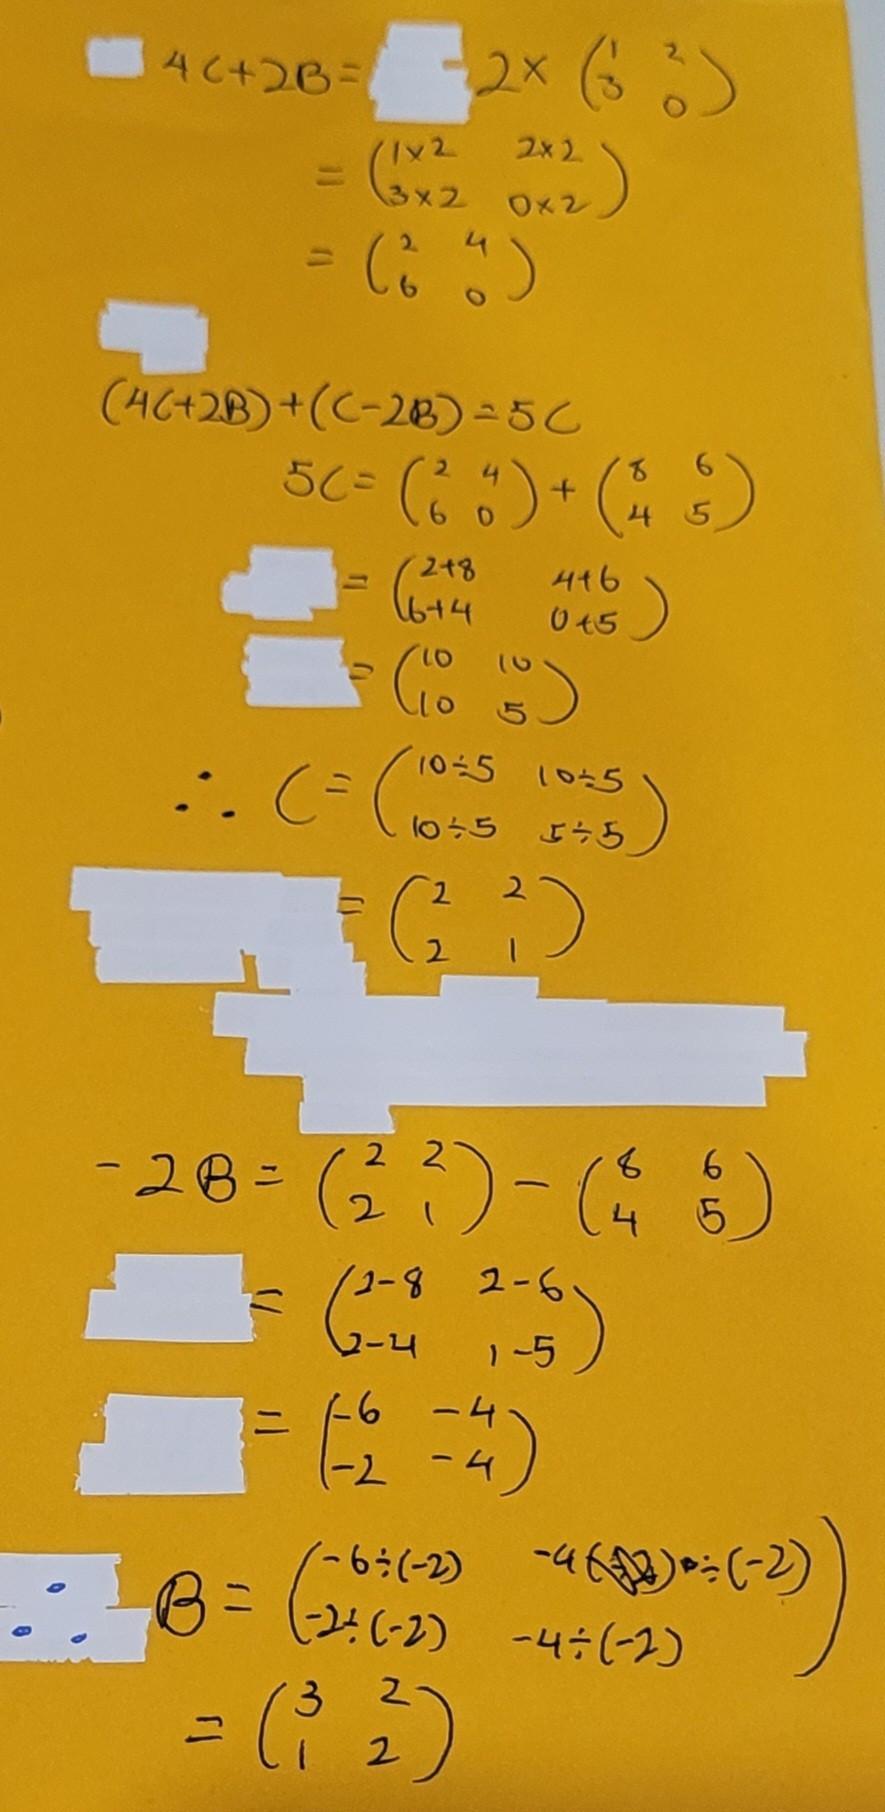 4C+2B= 2× (1 2
3 0)
= (1×2 2×2
3×2 0×2)
= (2 4
6 0)
(4C+2B)+(C-2B)=5C
5C= (2 4
6 0) + (8 6
4 5)
= (2+8 4+6
6+4 0+5)
= (10 10
10 5)
∴ C= (10÷5 10÷5
10÷5 5÷5)
= (2 2
2 1)
-2B= (2 2
2 1) - (8 6
4 5)
= (2-8 2-6
2-4 1-5)
= (-6 -4
-2 -4)
∴ B= (-6÷(-2) -4 ÷(-2)
-2÷(-2) -4÷(-2))
= (3 2
1 2)